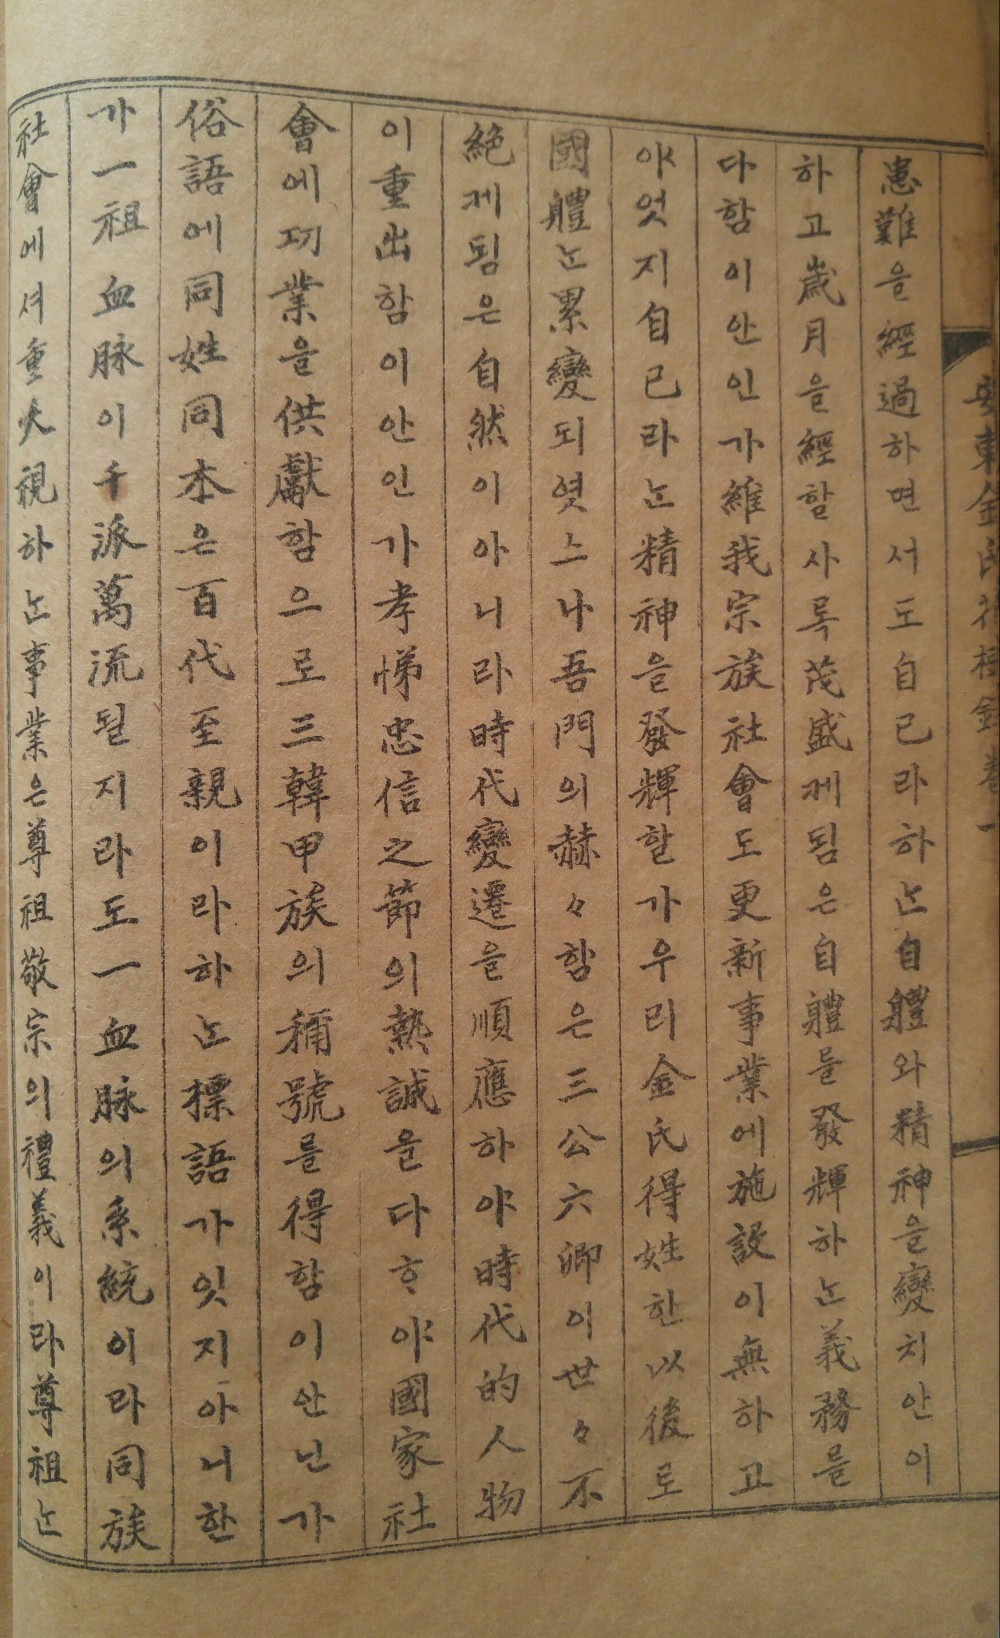 安東金氏花樓錄卷一
患難을經過하면서도自己라하는自體와精神을變치안이
하고歲月을經할사록茂盛케됨은自體를發輝하는義務를
다함이안인가維我宗族社會도更新事業에施設이無하고
야엇지自己라는精神을發輝할가우리金氏得姓한以後로
國體는累變되엿스나吾門의赫々함은三公六卿이世々不
絶케됨은自然이아니라時代變遷을順應하야時代的人物
이重出함이안인가孝悌忠信之節의熱誠을다ᄒᆞ야國家社
會에功業을供獻함으로三韓甲族의稱號를得함이안닌가
俗語에同姓同本은百代至親이라하는標語가잇지아니한
가一祖血脉이千派萬流될지라도一血脉의系統이라同族
社會에셔重大視하는事業은尊祖敬宗의禮義이라尊祖는